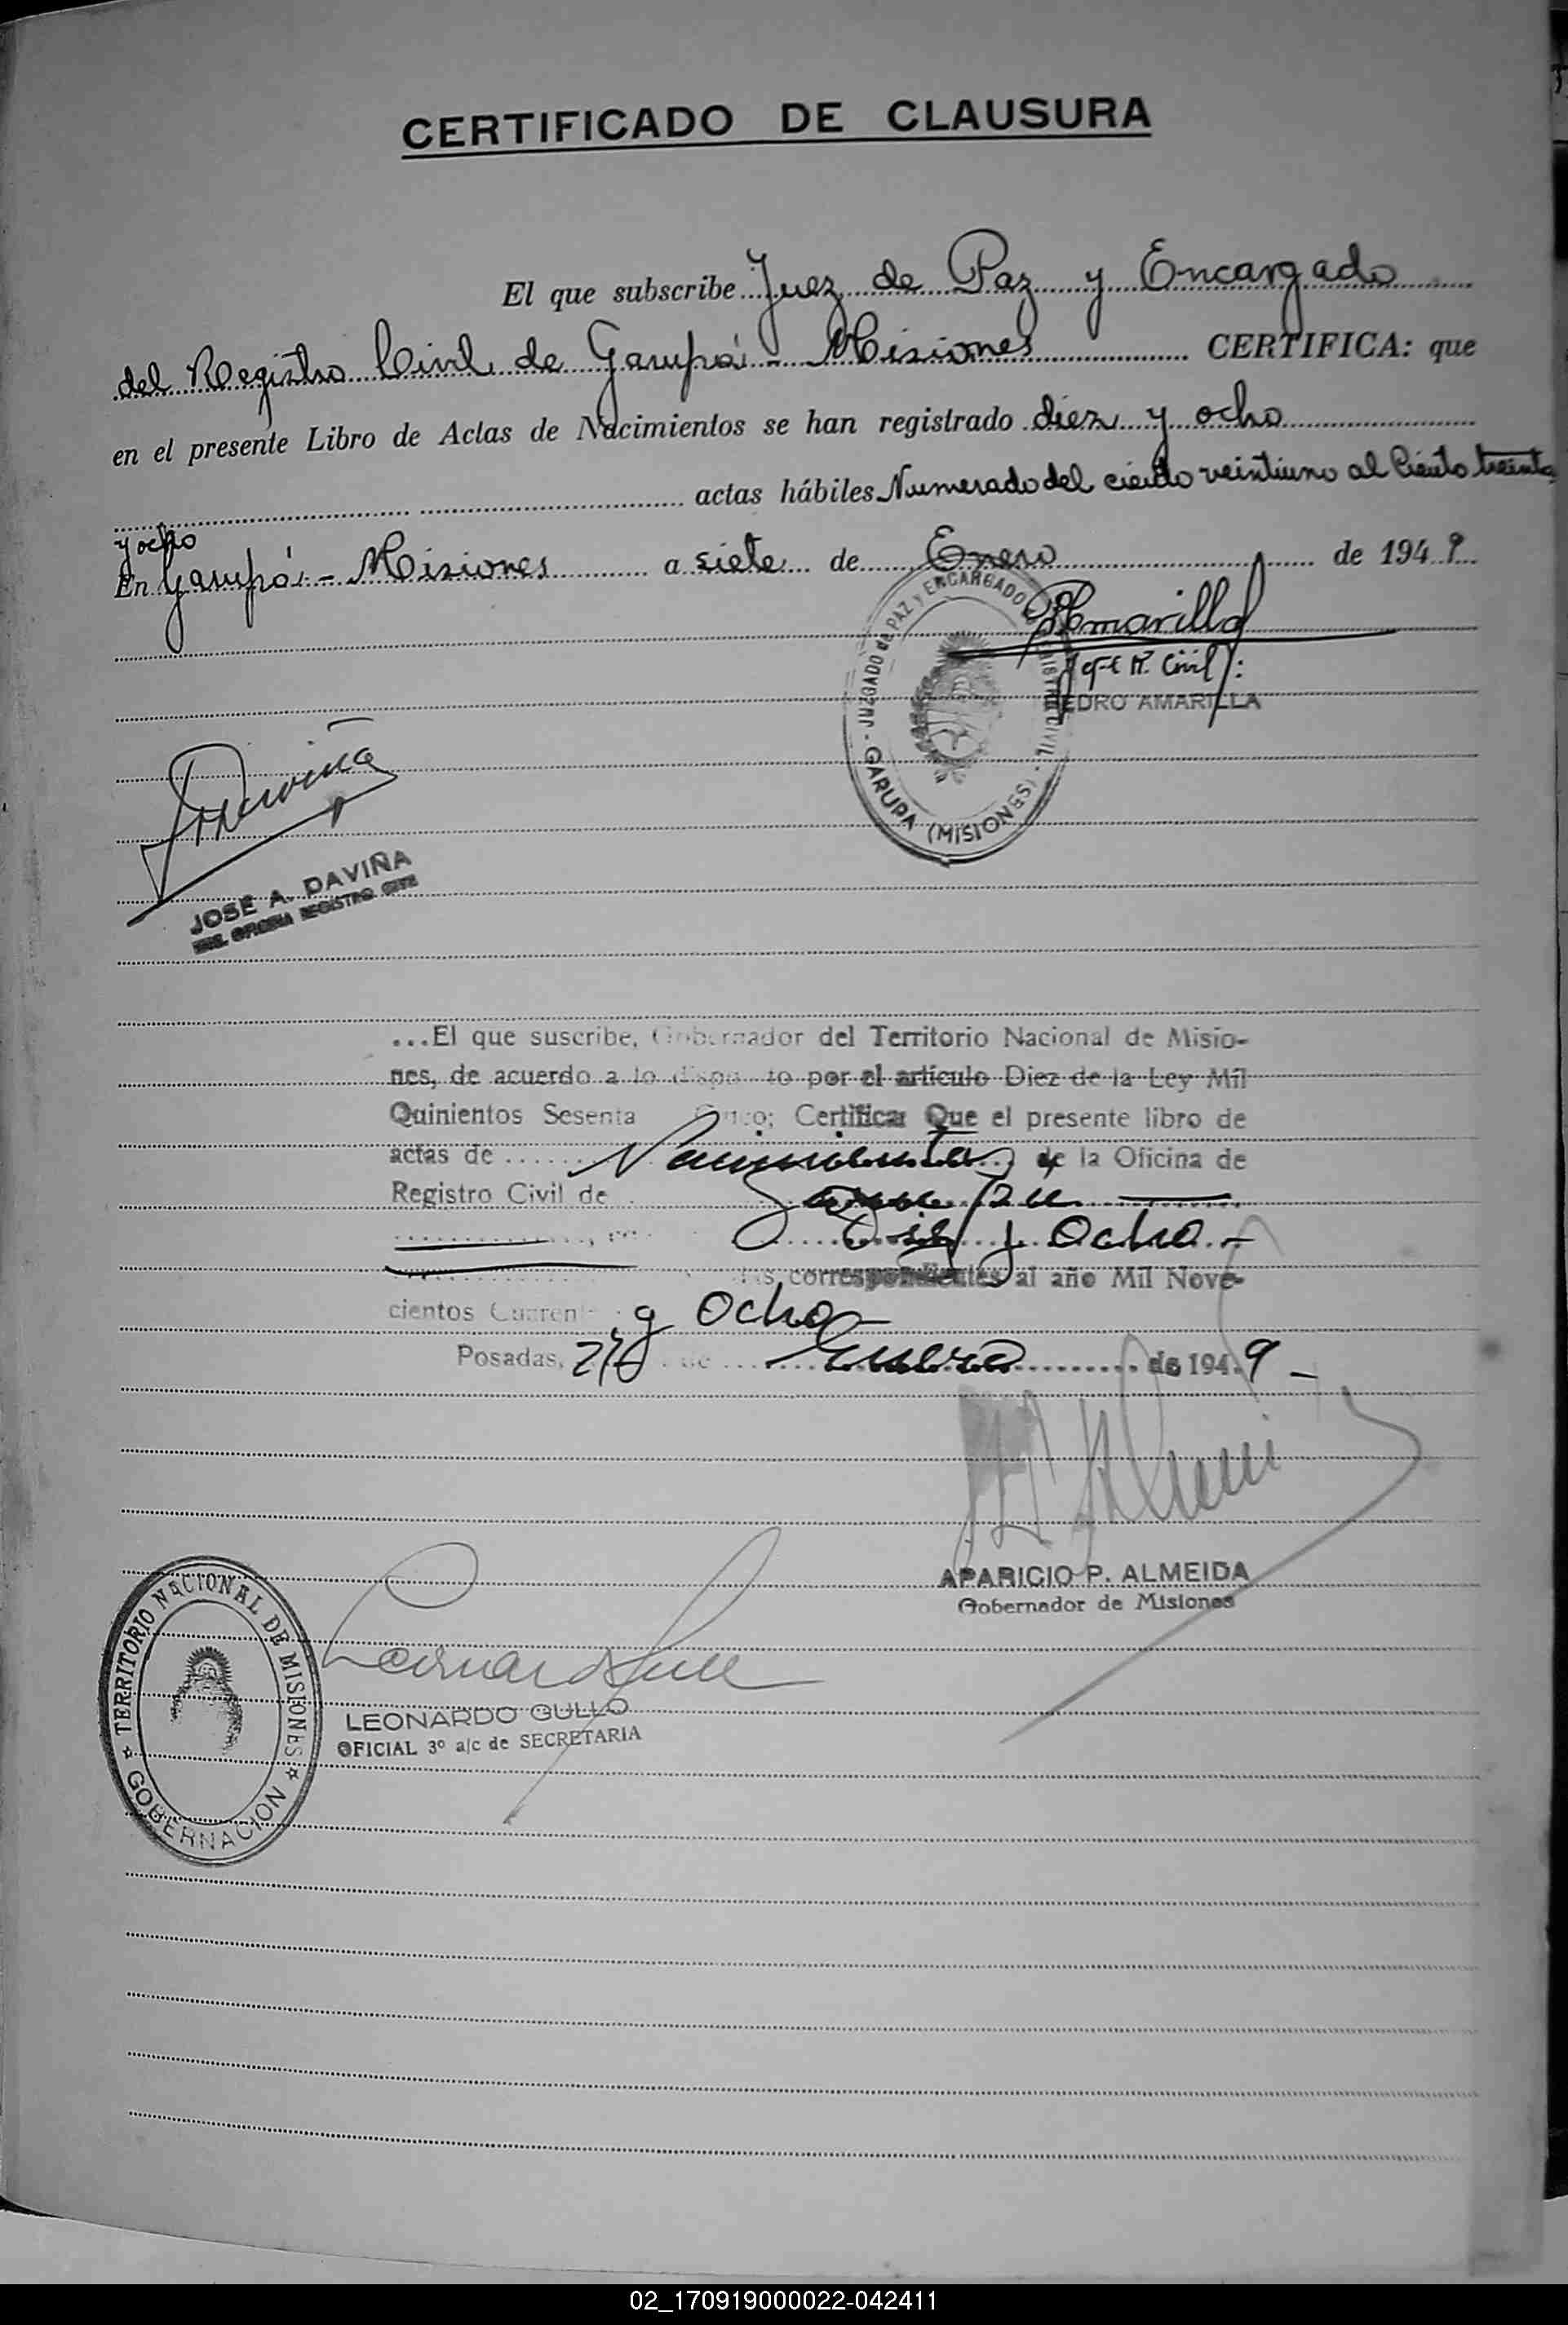 CERTIFICADO DE CLAUSURA
El que subscribe Juez de Paz y Encargado
del Registro Civil de Garupá - Misiones CERTIFICA: que
en el presente Libro de Actas de Nacimientos se han registrado diez y ocho
actas hábiles Numerado del ciento veintiuno al Ciento treinta
y ocho
En Garupá - Misiones a siete de Enero de 1949
JUZGADO de PAZ y ENCARGADO REGISTRO CIVIL - GARUPA (MISIONES)
PAmarilla
Jefe R. Civil:
PEDRO AMARILLA
JDaviña
JOSE A. DAVIÑA
OFICINA REGISTRO CIVIL
...El que suscribe, Gobernador del Territorio Nacional de Misio-
nes, de acuerdo a lo dispuesto por el artículo Diez de la Ley Mil
Quinientos Sesenta Cinco; Certifica: Que el presente libro de
actas de Nacimientos de la Oficina de
Registro Civil de Garupá
Diez y Ocho -
correspondientes al año Mil Nove-
cientos Cuarenta y Ocho -
Posadas, de Enero de 1949 -
APARICIO P. ALMEIDA
Gobernador de Misiones
TERRITORIO NACIONAL DE MISIONES
GOBERNACION
LEONARDO GULLO
OFICIAL 3º a/c de SECRETARIA
02_170919000022-042411